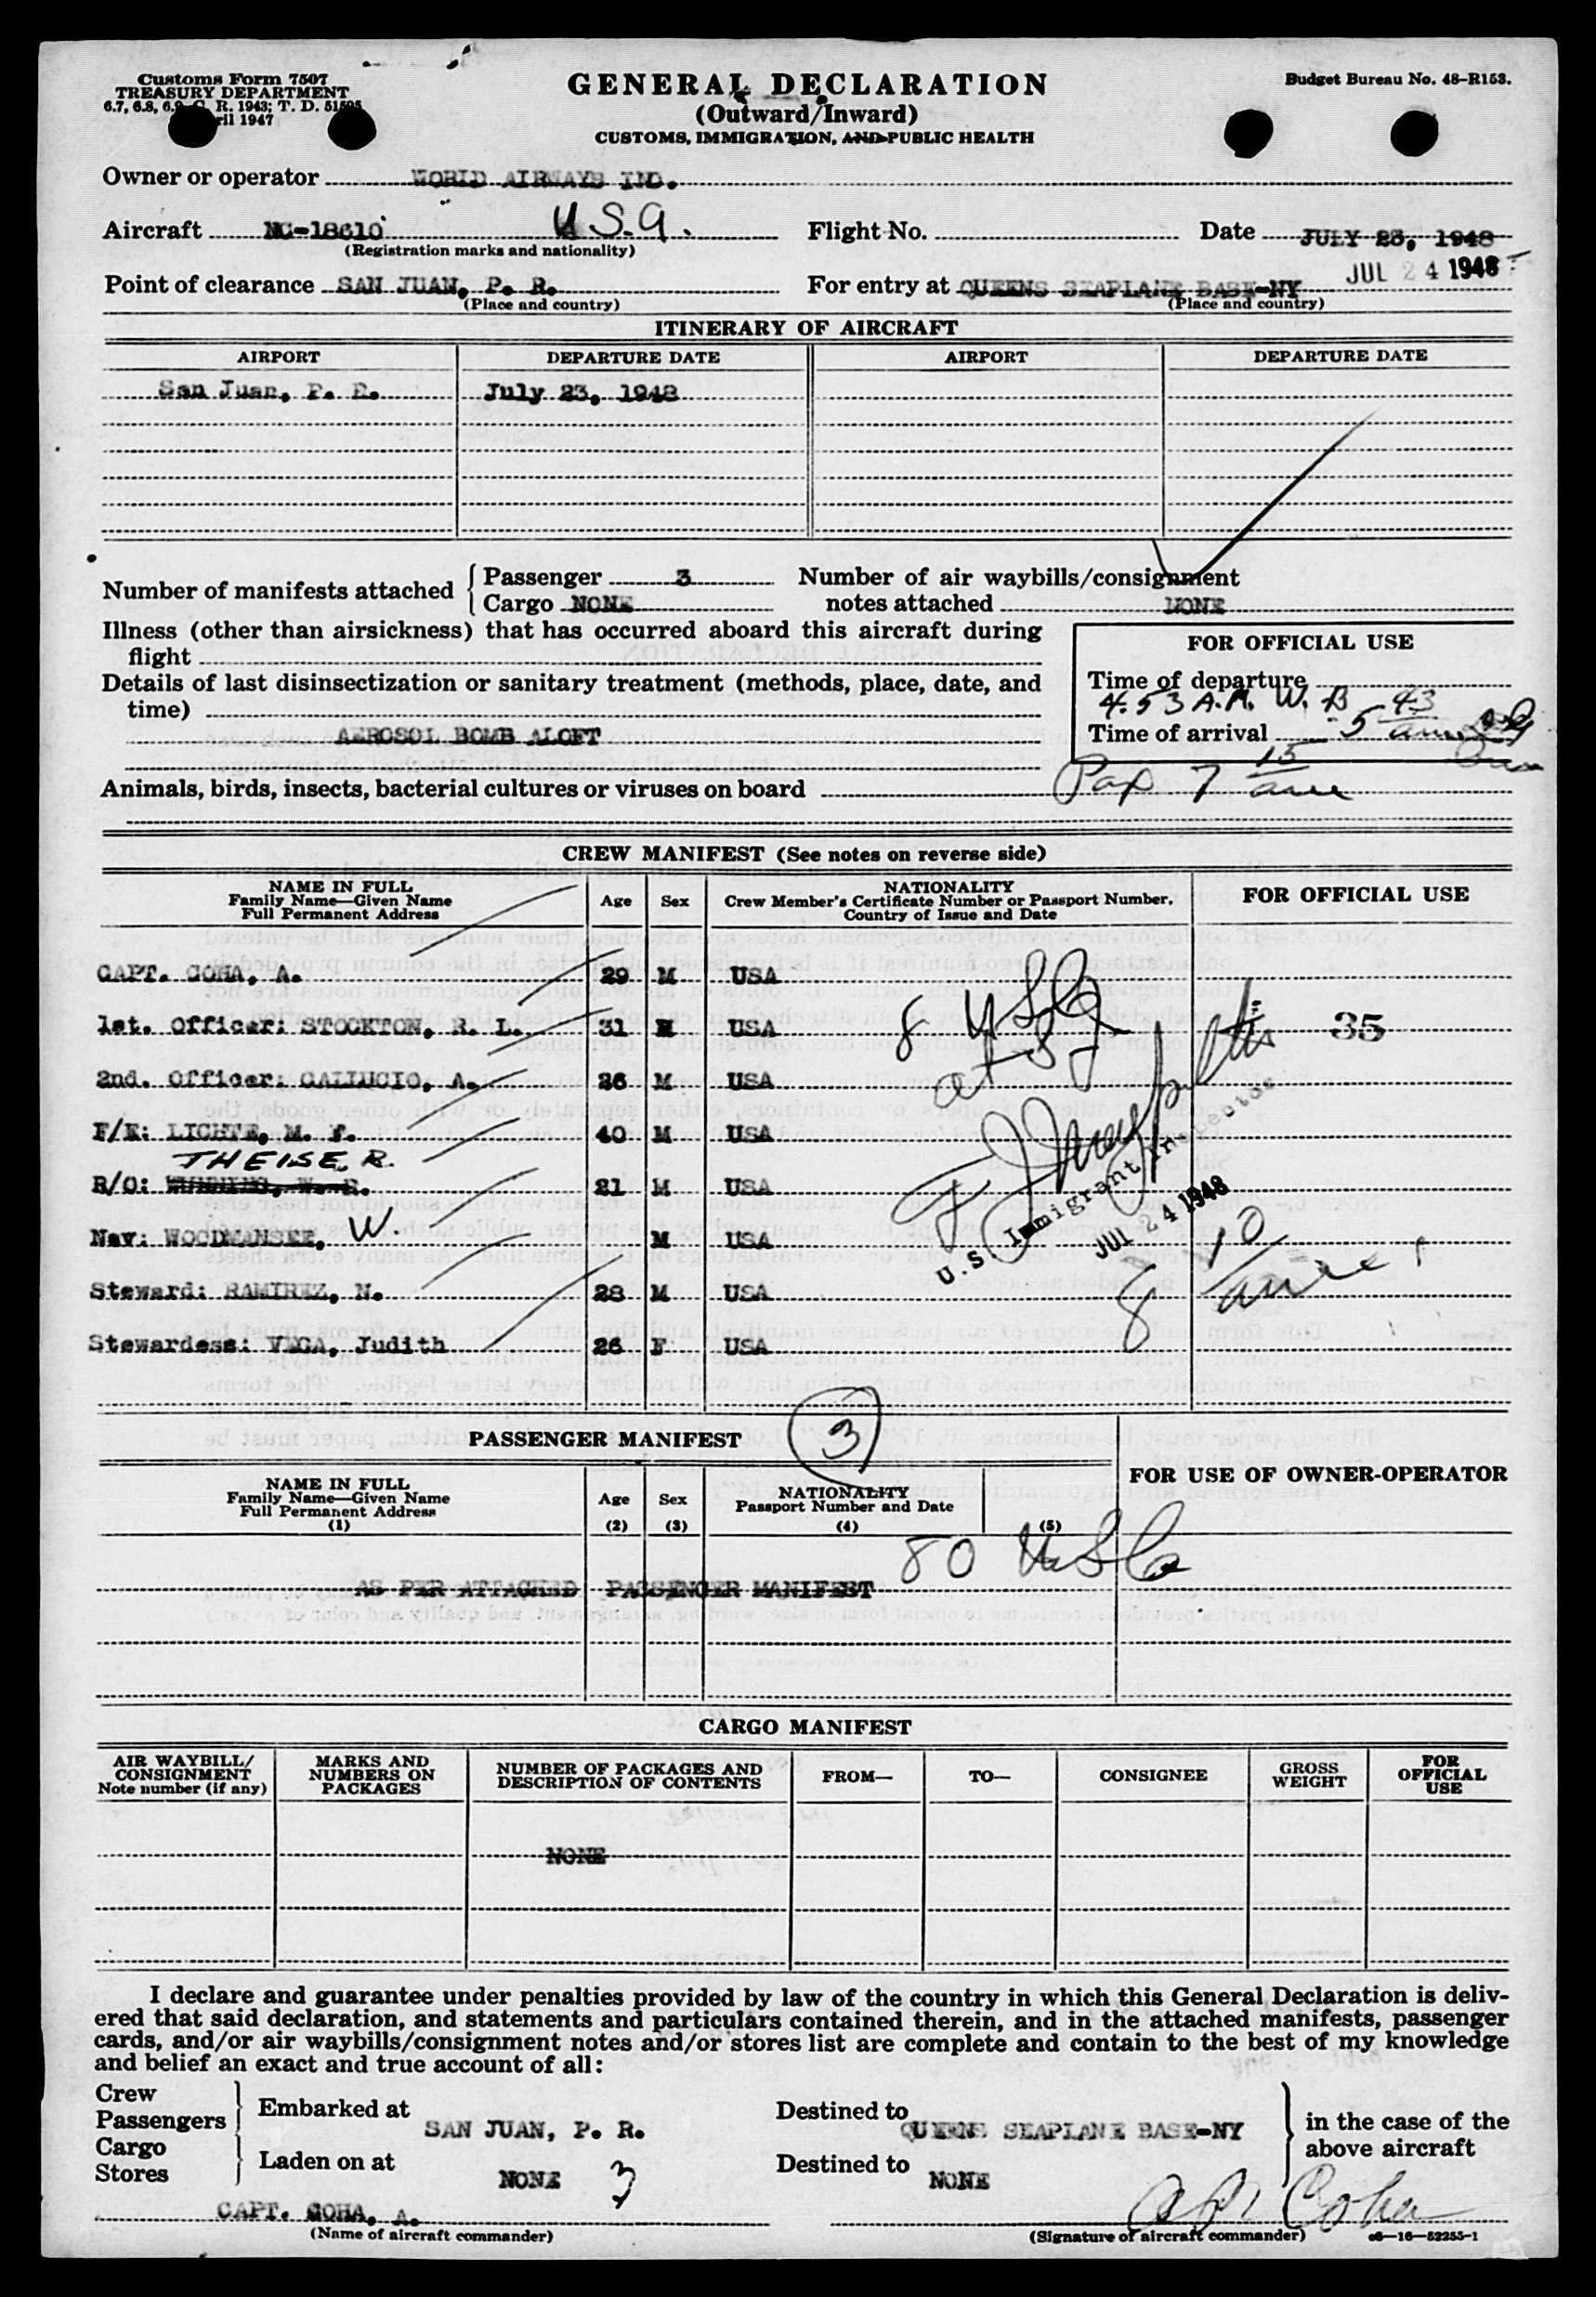 Customs Form 7507
TREASURY DEPARTMENT
6.7, 6.8, 6.9, C. R. 1943; T. D. 51595
April 1947
GENERAL DECLARATION
(Outward/Inward)
CUSTOMS, IMMIGRATION, AND PUBLIC HEALTH
Budget Bureau No. 48-R153.
Owner or operator WORLD AIRWAYS INC.
Aircraft NC-18610 U.S.A. Flight No. Date JULY 23, 1948
(Registration marks and nationality)
JUL 24 1948
Point of clearance SAN JUAN, P. R. For entry at QUEENS SEAPLANE BASE-NY
(Place and country) (Place and country)
ITINERARY OF AIRCRAFT
AIRPORT DEPARTURE DATE AIRPORT DEPARTURE DATE
San Juan, P. R. July 23, 1948
Number of manifests attached Passenger 3 Number of air waybills/consignment
Cargo NONE notes attached NONE
Illness (other than airsickness) that has occurred aboard this aircraft during
flight
FOR OFFICIAL USE
Details of last disinsectization or sanitary treatment (methods, place, date, and
time)
Time of departure
4:53 A.M. W. B 43
Time of arrival 5
AEROSOL BOMB ALOFT
Pax 7 15
Animals, birds, insects, bacterial cultures or viruses on board
CREW MANIFEST (See notes on reverse side)
NAME IN FULL
Family Name—Given Name
Full Permanent Address
Age Sex
NATIONALITY
Crew Member's Certificate Number or Passport Number,
Country of Issue and Date
FOR OFFICIAL USE
CAPT. COHA, A. 29 M USA
1st. Officer: STOCKTON, R. L. 31 M USA 35
8 USC
2nd. Officer: GALLUCIO, A. 26 M USA
F/E: LICHTE, M. F. 40 M USA
THEISE, R.
R/O: 21 M USA
U.S. Immigrant Inspector
JUL 24 1948
Nav: WOODMANSEE, W. M USA
8 10
Steward: RAMIREZ, N. 28 M USA
Stewardess: VEGA, Judith 26 F USA
PASSENGER MANIFEST 3
NAME IN FULL
Family Name—Given Name
Full Permanent Address
(1)
Age
(2)
Sex
(3)
NATIONALITY
Passport Number and Date
(4) (5)
FOR USE OF OWNER-OPERATOR
80 USC
AS PER ATTACHED PASSENGER MANIFEST
CARGO MANIFEST
AIR WAYBILL/
CONSIGNMENT
Note number (if any)
MARKS AND
NUMBERS ON
PACKAGES
NUMBER OF PACKAGES AND
DESCRIPTION OF CONTENTS
FROM—
TO—
CONSIGNEE
GROSS
WEIGHT
FOR
OFFICIAL
USE
NONE
I declare and guarantee under penalties provided by law of the country in which this General Declaration is deliv-
ered that said declaration, and statements and particulars contained therein, and in the attached manifests, passenger
cards, and/or air waybills/consignment notes and/or stores list are complete and contain to the best of my knowledge
and belief an exact and true account of all:
Crew
Passengers
Cargo
Stores
Embarked at SAN JUAN, P. R. Destined to QUEENS SEAPLANE BASE-NY
in the case of the
above aircraft
Laden on at NONE 3 Destined to NONE
CAPT. COHA, A.
(Name of aircraft commander) (Signature of aircraft commander) c6—16—52255-1